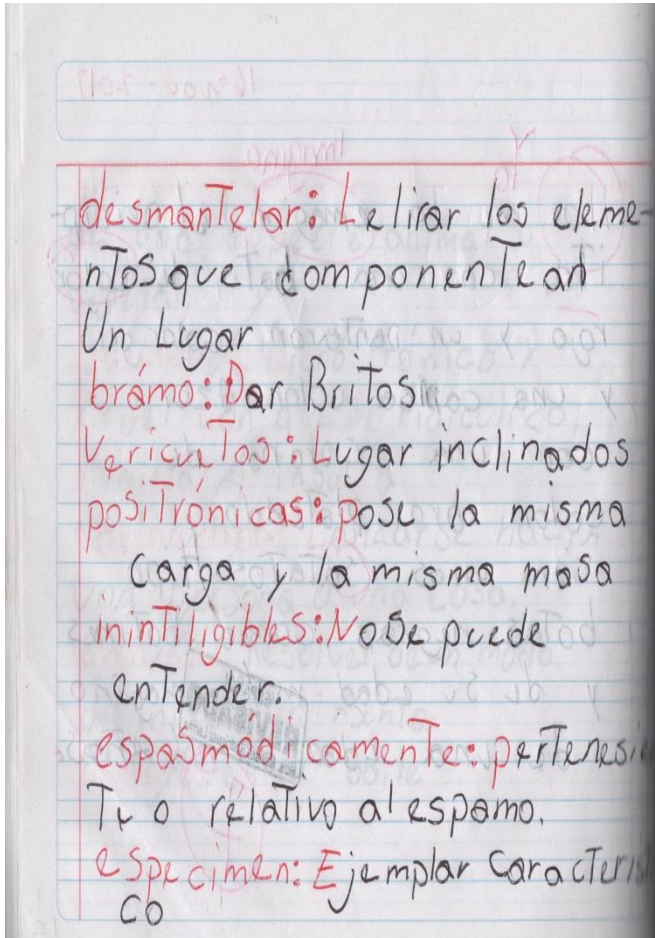 desmantelar: Lelirar los eleme-
ntos que componentean
Un Lugar
brámo: Dar Britos
Vericuetos: Lugar inclinados
positrónicas: pose la misma
carga y la misma masa
inintiligibles: No se puede
entender.
espasmodicamente: pertenesie
Te o relativo al espamo.
especimen: Ejemplar Caracteris
CO